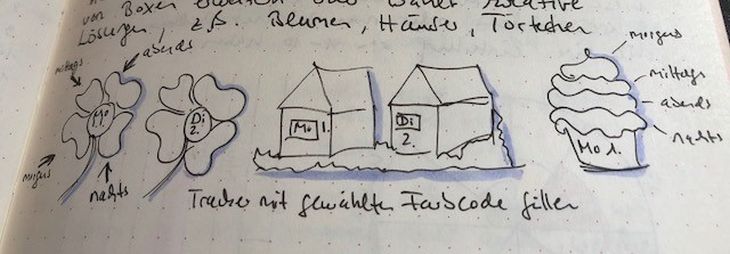 von Boxen
kreative
Lösungen, z.B. Blumen, Häuser, Törtchen
mittags
abends
Mo
Di
2.
morgens
nachts
Mo 1.
Di
2.
morgens
mittags
abends
nachts
Mo 1.
Tracker mit gewähltem Farbcode füllen